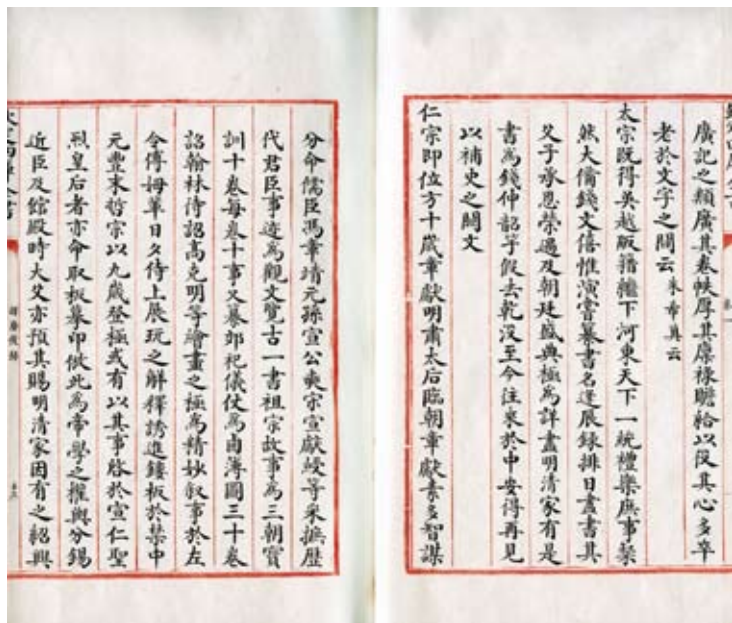 廣記之類廣其卷帙厚其廩祿贍給以役其心多卒
老於文字之間云朱希真云
太宗既得吳越版籍繼下河東天下一統禮樂庶事粲
然大備錢文僖惟演嘗纂書名逢辰錄排日盡書其
父子承恩榮遇及朝廷盛典極為詳盡明清家有是
書為錢仲韶竽假去乾没至今往來於中安得再見
以補史之闕文
仁宗即位方十歲章獻明肅太后臨朝章獻素多智謀
分命儒臣馮章靖元孫宣公奭宋宣獻綬等采摭歷
代君臣事迹為觀文覽古一書祖宗故事為三朝寶
訓十卷每卷十事又纂郊祀儀仗為鹵簿圖三十卷
詔翰林待詔高克明等繪畫之極為精妙叙事於左
令傅姆輩日夕侍上展玩之解釋誘進鏤板於禁中
元豐末哲宗以九歲登極或有以其事啓於宣仁聖
烈皇后者亦命取板摹印倣此為帝學之權輿分錫
近臣及館殿時大父亦預其賜明清家因有之紹興
揮麈後錄